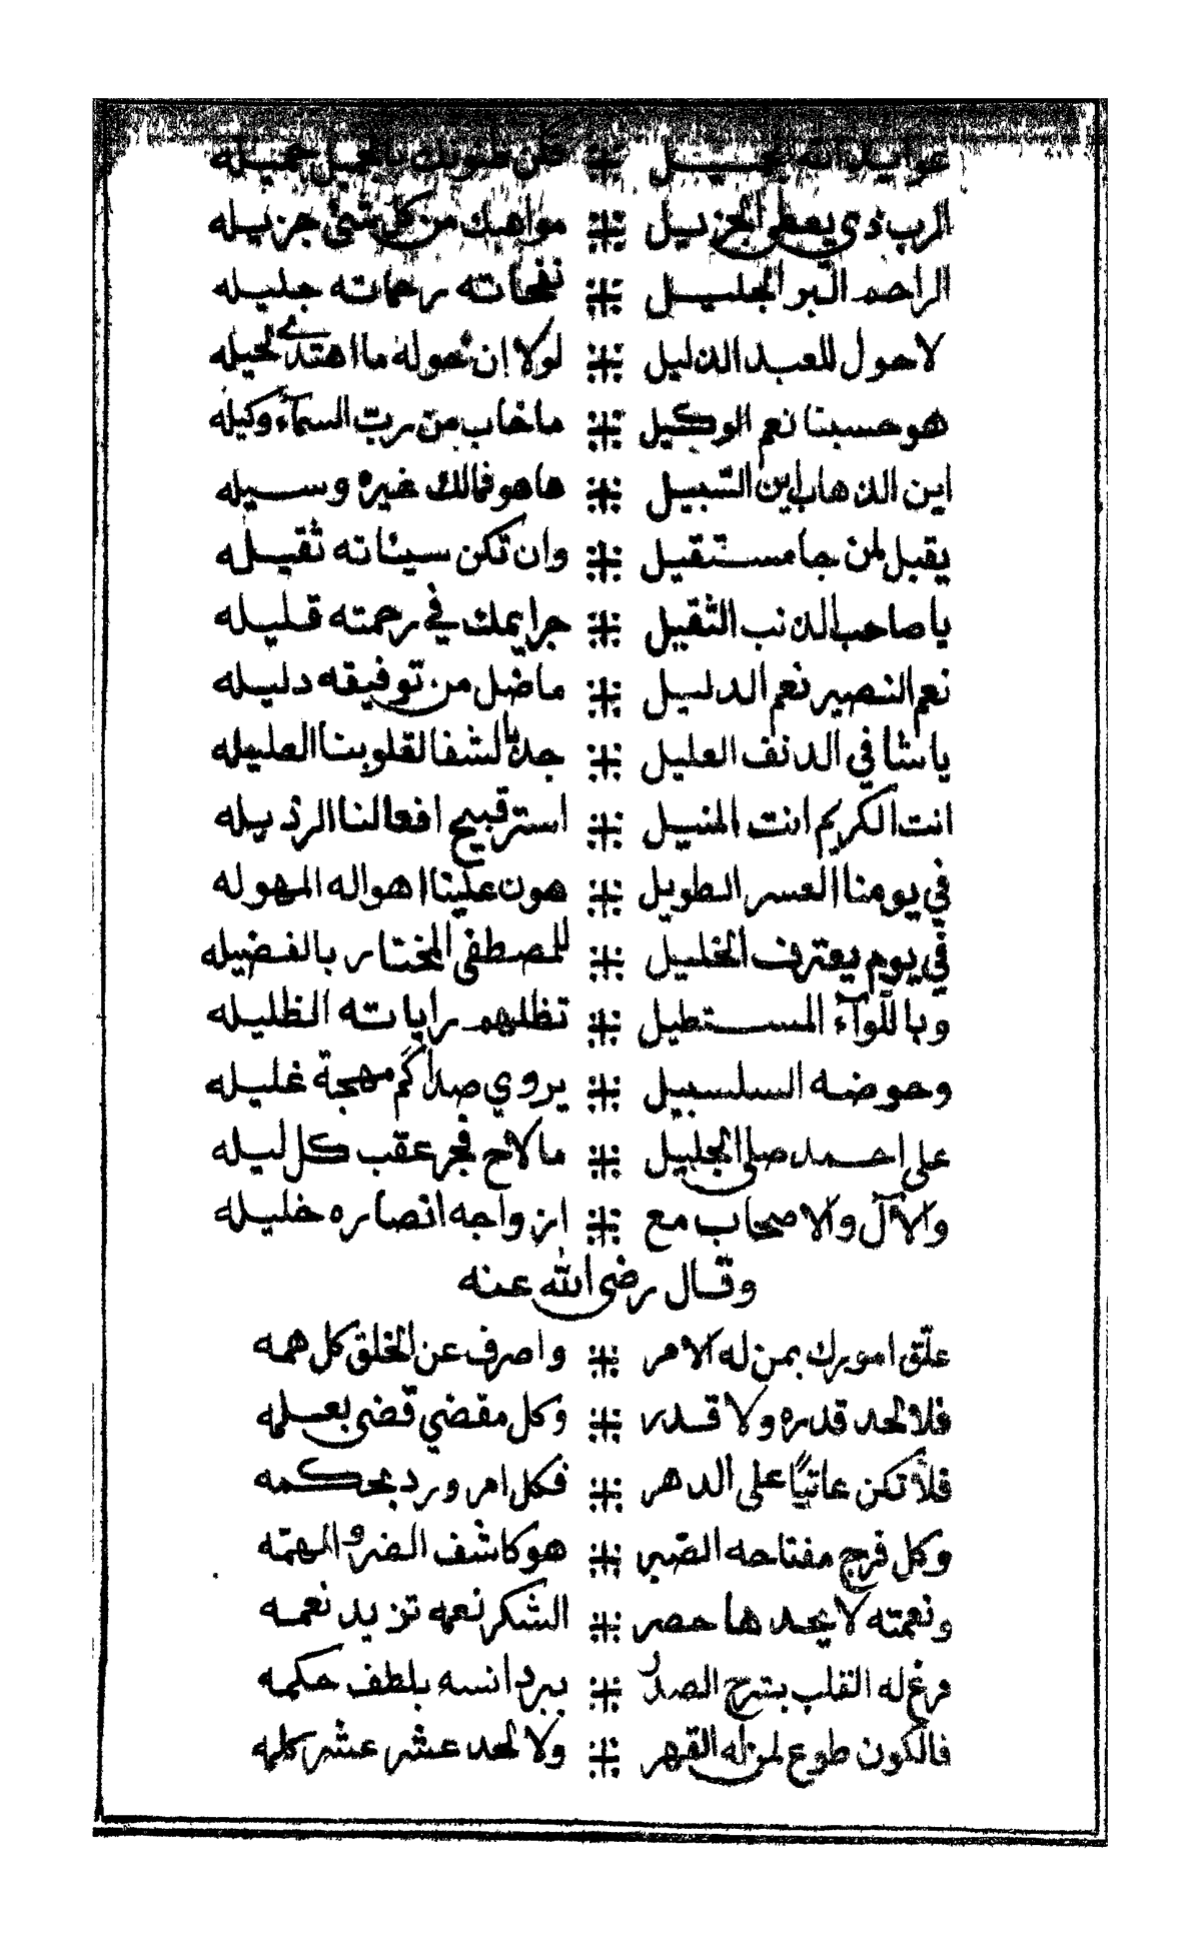 عوايد الله بجميل فكن ظنونك بالجميل جميله
الرب ذي يعطي الجزيل مواهبك من كل شئ جزيله
الراحم البر الجليل نفحاته رحماته جليله
لاحول للعبد الذليل لولا ان حوله ما اهتدى لحيله
هو حسبنا نعم الوكيل ما خاب من ربّ السمآء وكيله
اين الذهاب اين السّبيل ها هو فمالك غيره وسيله
يقبل لمن جا مستقيل وان تكن سيئاته ثقيله
يا صاحب الذنب الثقيل جرايمك في رحمته قليله
نعم النصير نعم الدليل ما ضل من توفيقه دليله
يا شافي الدنف العليل جد بالشفا لقلوبنا العليله
انت الكريم انت المنيل استر قبيح افعالنا الرذيله
في يومنا العسر الطويل هون علينا اهواله المهوله
في يوم يعترف الخليل للمصطفى المختار بالفضيله
وباللّوآء المستطيل تظلهم راياته الظليله
وحوضه السلسبيل يروي صداكم مهجة غليله
على احمد صلى الجليل ما لاح فجر عقب كل ليله
والآل والاصحاب مع ازواجه انصاره خليله
وقال رضي الله عنه
علّق امورك بمن له الامر واصرف عن الخلق كل همه
فلا لحد قدره ولا قدر وكل مقضي قضى بعلمه
فلا تكن عاتبًا على الدهر فكل امر ورد بحكمه
وكل فرج مفتاحه الصّبر هو كاشف الضر والمهمّه
ونعمته لا يحدها حصر الشكر نعمه تزيد نعمه
فرغ له القلب يشرح الصدر ببرد انسه بلطف حكمه
فالكون طوع لمن له القهر ولا لحد عشر عشر كلمه